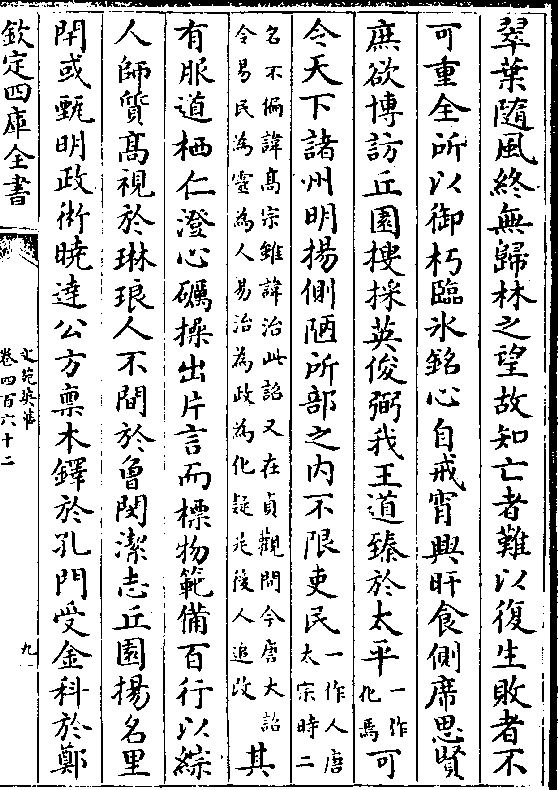 翠葉隨風終無歸林之望故知亡者難以復生敗者不
可重全所以御朽臨氷銘心自戒宵興旰食側席思賢
庶欲博訪丘園搜採英俊弼我王道臻於太平一作化焉可
令天下諸州明揚側陋所部之内不限吏民一作人唐太宗時二
名不徧諱高宗雖諱治此詔又在貞觀間今唐大詔
令易民為靈為人易治為政為化疑是後人追改其
有服道栖仁澄心礪操出片言而標物範備百行以綜
人師質高視於琳琅人不間於魯閔潔志丘園揚名里
閈或甄明政術曉達公方稟木鐸於孔門受金科於鄭
欽定四庫全書
文苑英華
卷四百六十二
九